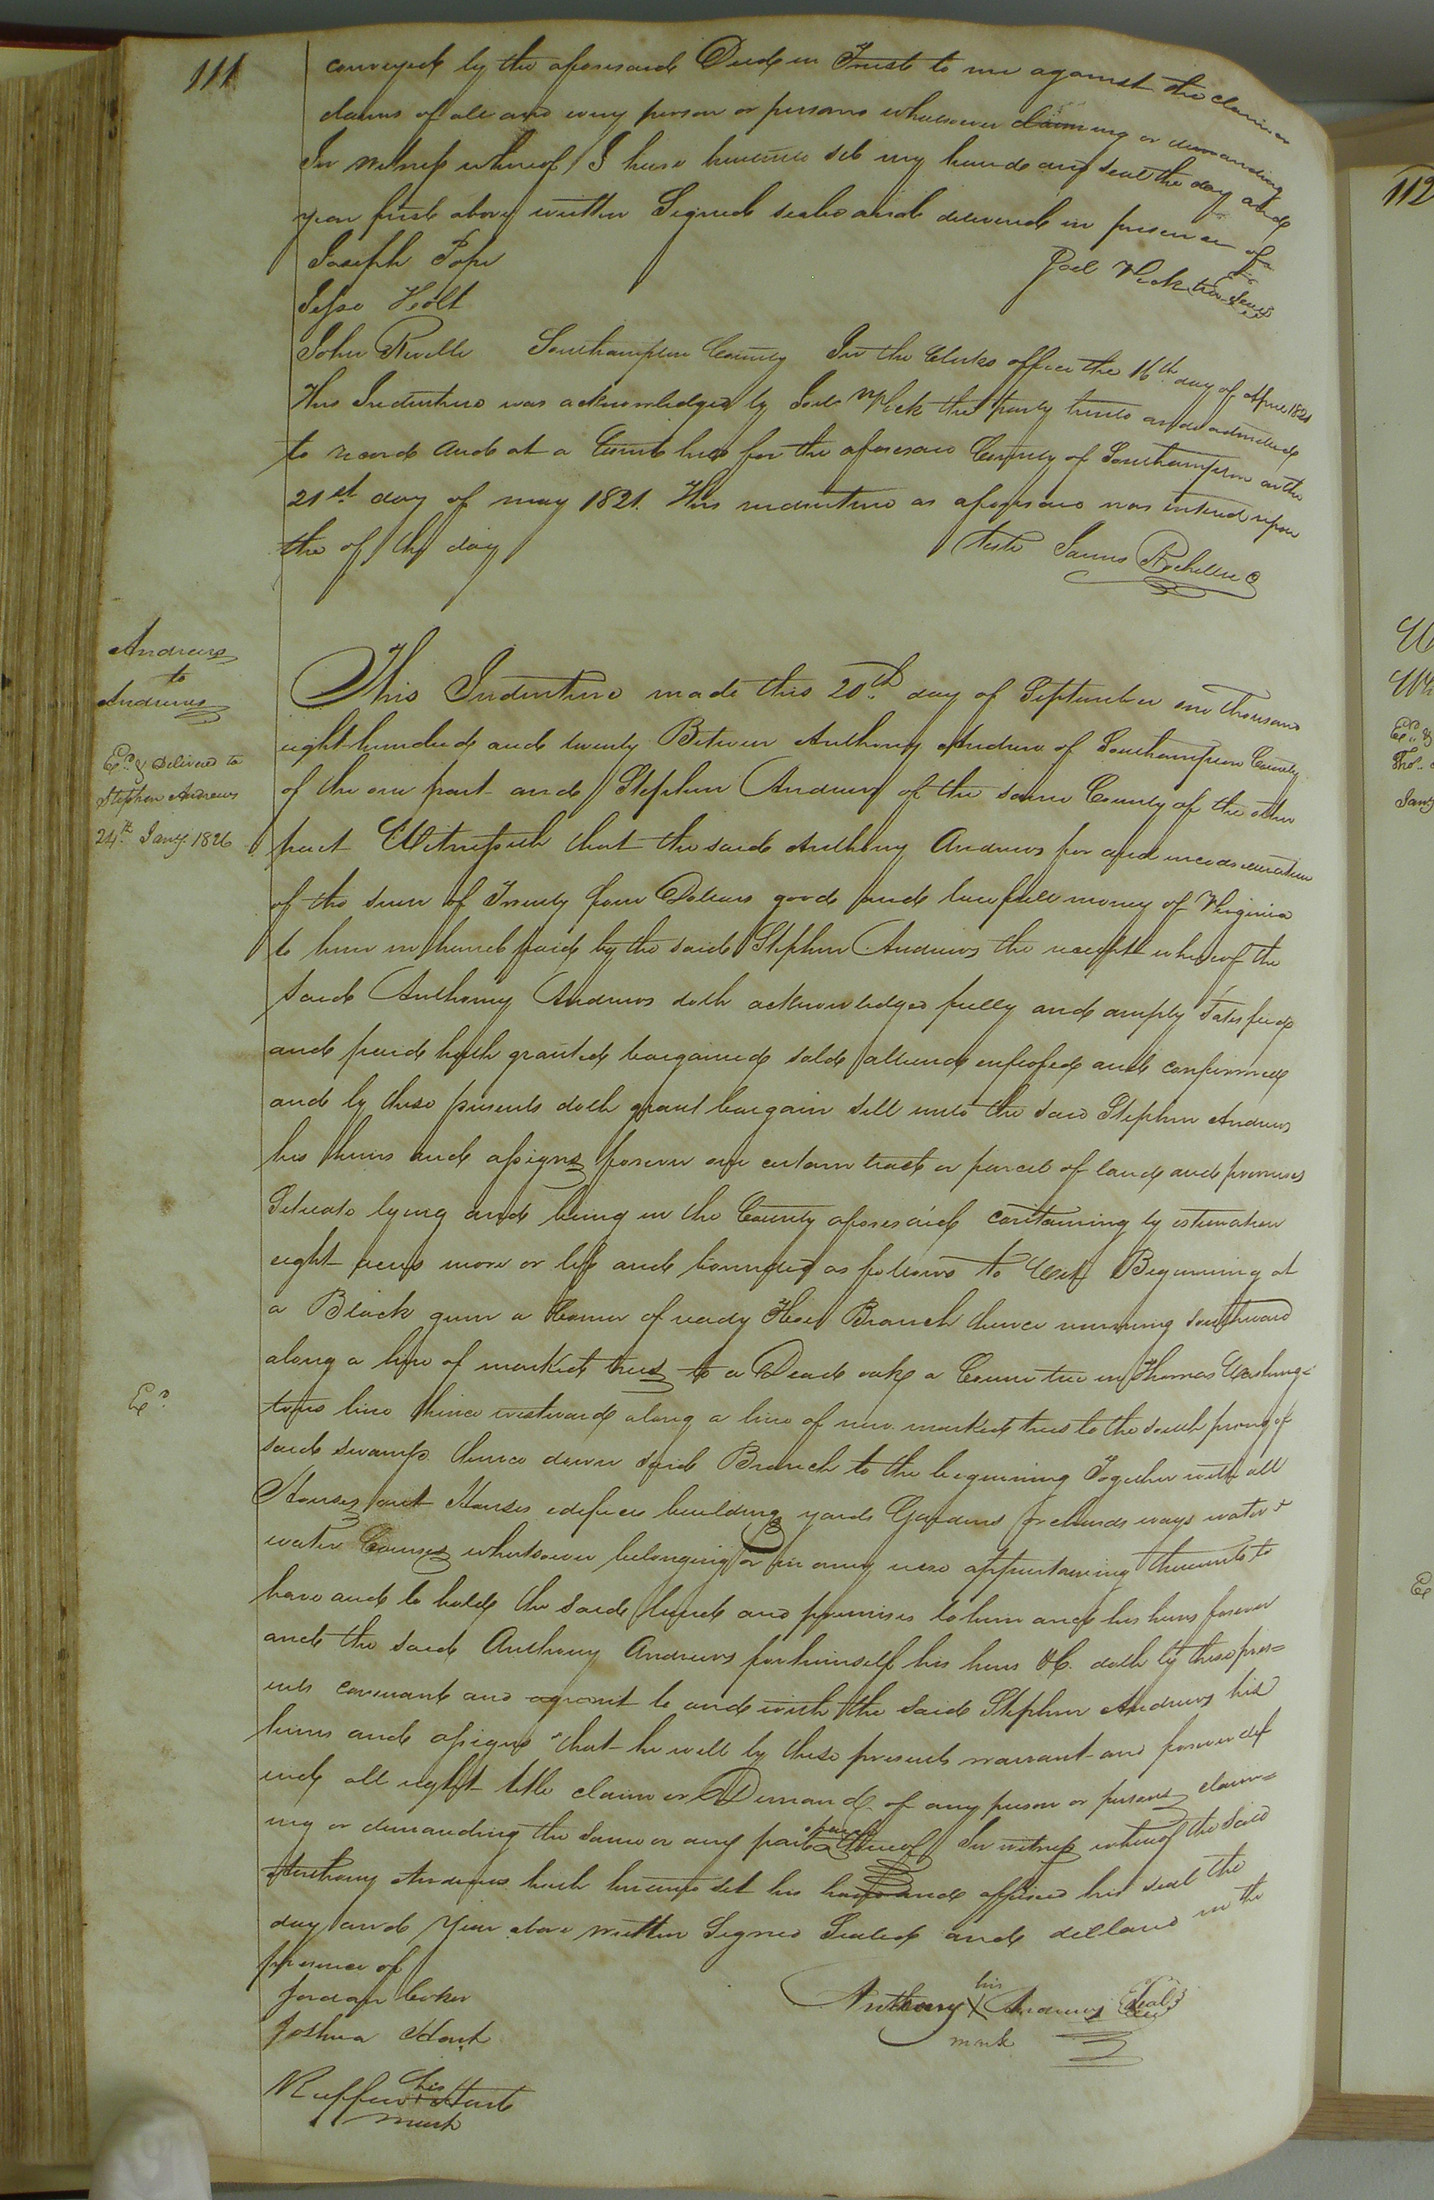 111
conveyed by the aforesaid Deed in Trust to me against the claim or
claims of all and every person or persons whatsoever claiming or demanding
In witness whereof I have hereunto set my hand and seal the day and
year first above written Signed sealed and delivered in presence of
Joseph Pope
Joel Vick Seal
Jesse Holt
John Revelle Southampton County In the Clerks office the 16th day of April 1821
This Indenture was acknowledged by Joel Vick the party hereto and admitted
to record and at a Court held for the aforesaid County of Southampton on the
21st day of may 1821. This indenture as aforesaid was entered upon
the of the day
Teste James Rochelle C
Andrews
to
Andrews
Exd & Delivered to
Stephen Andrews
24th Jany. 1826
This Indenture made this 20th day of September one thousand
eight hundred and twenty Between Anthony Andrew of Southampton County
of the one part and Stephen Andrews of the same County of the other
part Witnesseth that the said Anthony Andrews for and inconsideration
of the sum of Twenty four Dollars good and lawfull money of Virginia
to him in hand paid by the said Stephen Andrews the receipt whereof the
said Anthony Andrews doth acknowledged fully and amply Satisfied
and paid hath granted bargained sold aliend enfeofed and confirmed
and by these presents doth grant bargain sell unto the said Stephen Andrews
his heirs and assigns forever one certain tract or parcel of land and premises
Situate lying and being in the County aforesaid containing by estimation
eight acres more or less and bounded as follows to Wit Beginning at
a Black gum a Corner of ready Branch thence running Southward
along a line of marked trees to a Dead oak a Corner tree in Thomas Washing-
tons line thence westward along a line of new marked trees to the south prong of
said swamp thence down said Branch to the beginning Together with all
Houses out Houses edifices buildings yards Gardens Orchards ways waters
water Courses whatsoever belonging or in any wise appertaining thereunto to
have and to hold the said land and premises to him and his heirs forever
and the said Anthony Andrews for himself his heirs &C. doth by these pres=
ents covenant and agrant to and with the said Stephen Andrews his
heirs and assigns that he will by these presents warrant and forever def
end all right title claim or Demand of any person or persons claim=
ing or demanding the same or any part or parcel thereof In witness whereof the said
Anthony Andrews hath hereunto set his hand and affixed his seal the
day and Year above written Signed Sealed and in the
presence of
Jordan Coker
Joshua Hart
Anthony his X mark Andrews Seal
Ruffin his + mark Hart
Exd
112